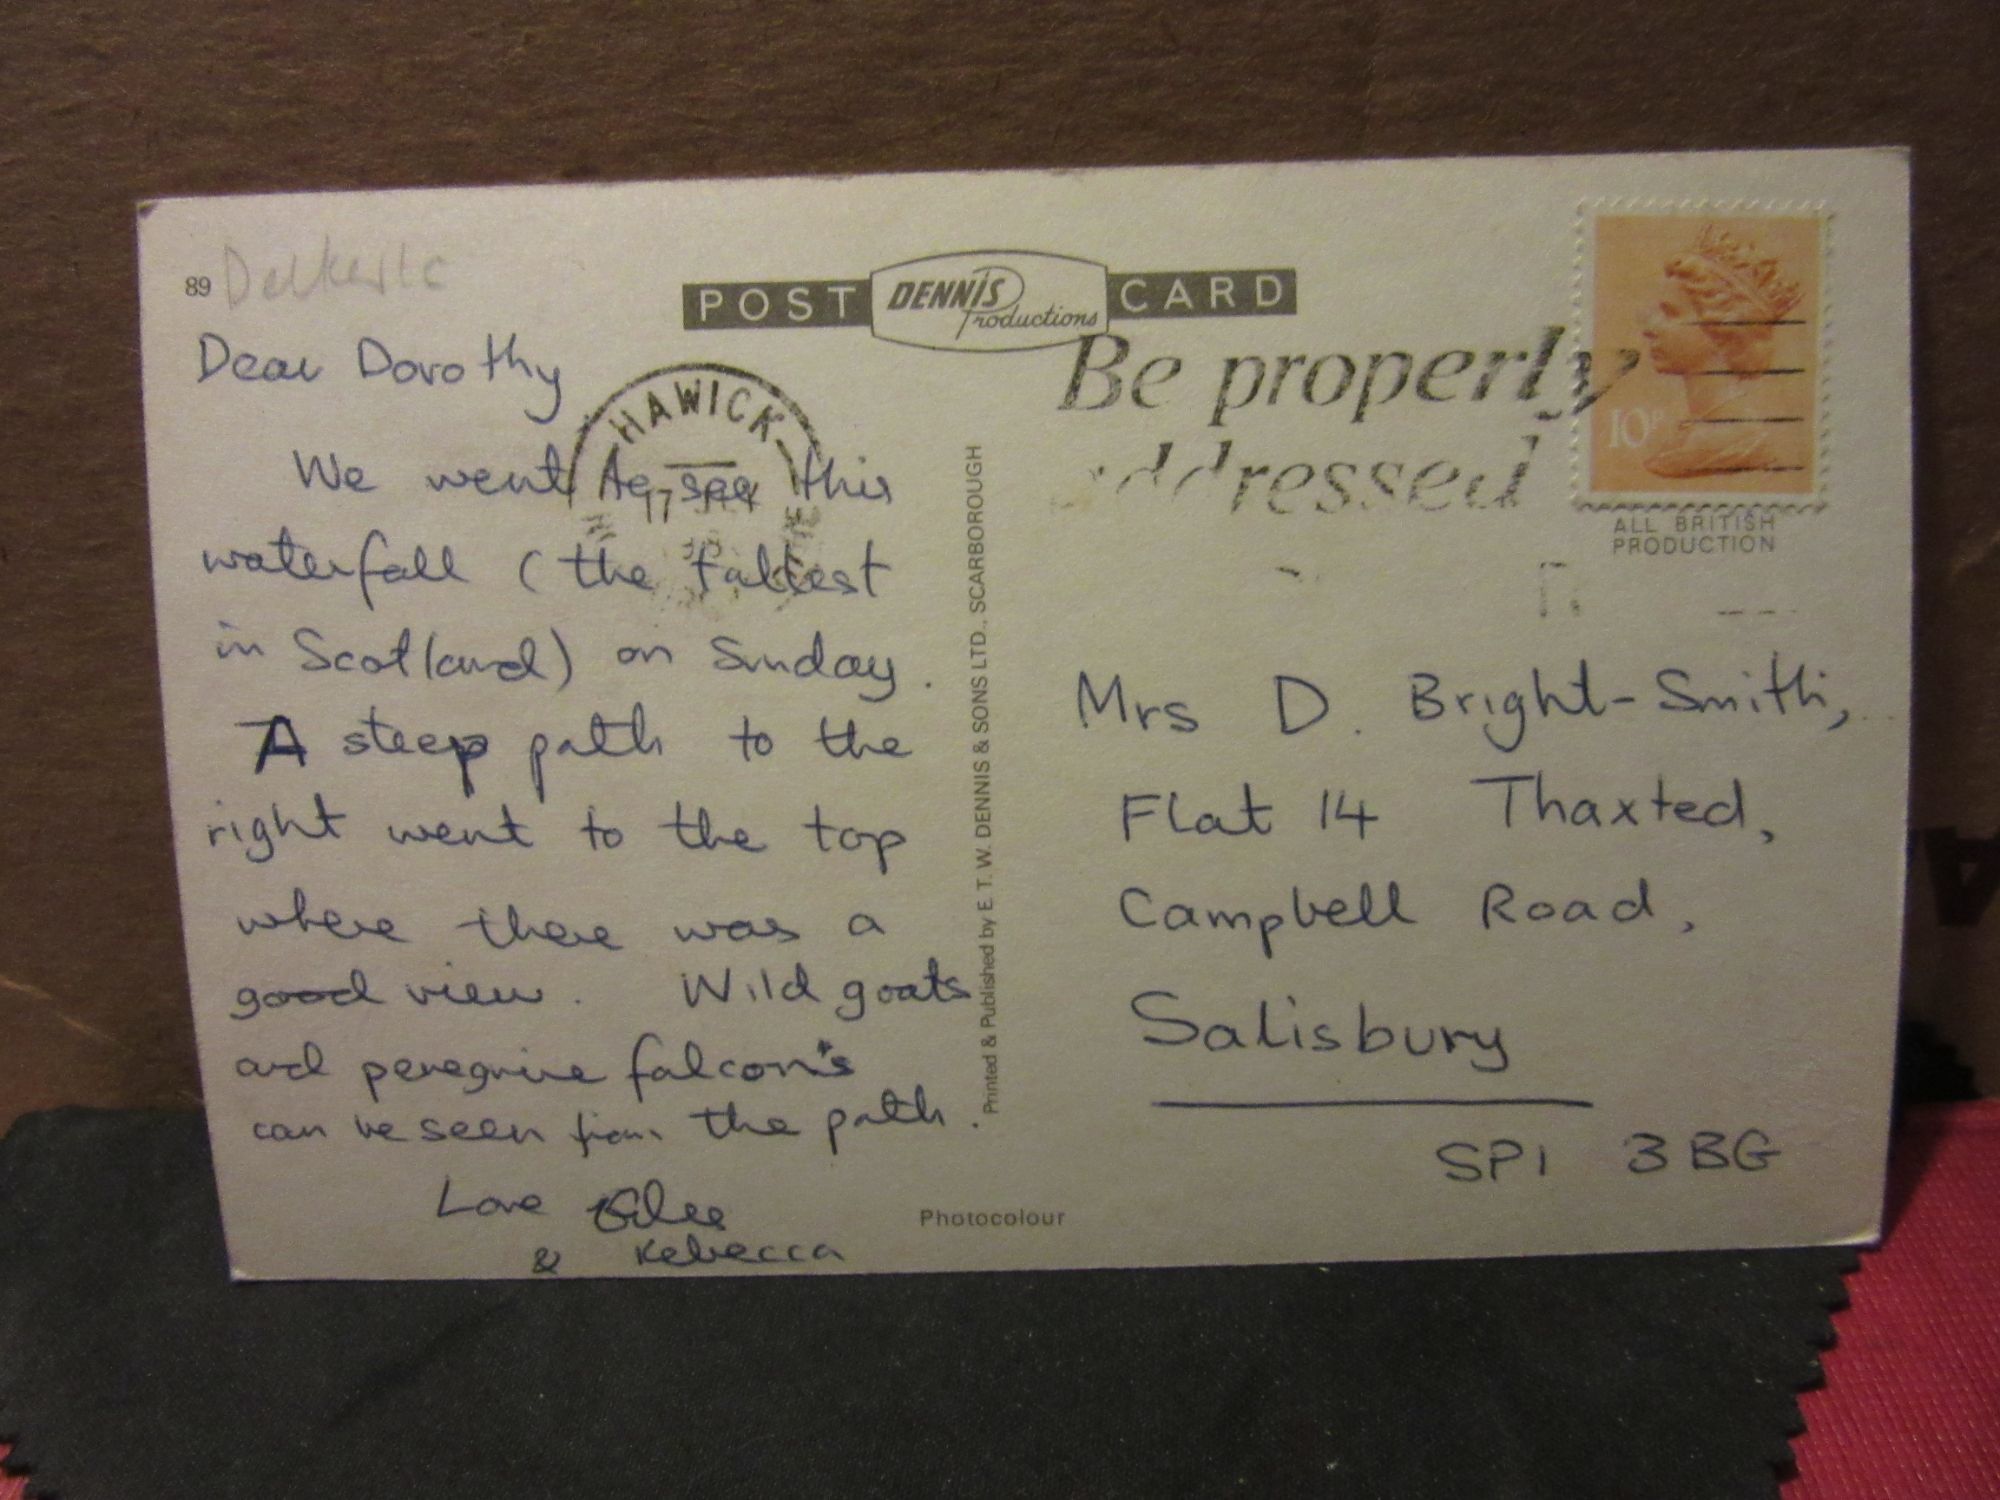 89
POST DENNIS Productions CARD
Dear Dorothy
We went to see this
waterfall (the tallest
in Scotland) on Sunday.
A steep path to the
right went to the top
where there was a
good view. Wild goats
and peregrine falcon's
can be seen from the path.
Love
& Rebecca
HAWICK
17
Be properly
addressed
10P
ALL BRITISH
PRODUCTION
Printed & Published by E. T. W. DENNIS & SONS LTD., SCARBOROUGH
Mrs D. Bright-Smith,
Flat 14 Thaxted,
Campbell Road,
Salisbury
SP1 3BG
Photocolour